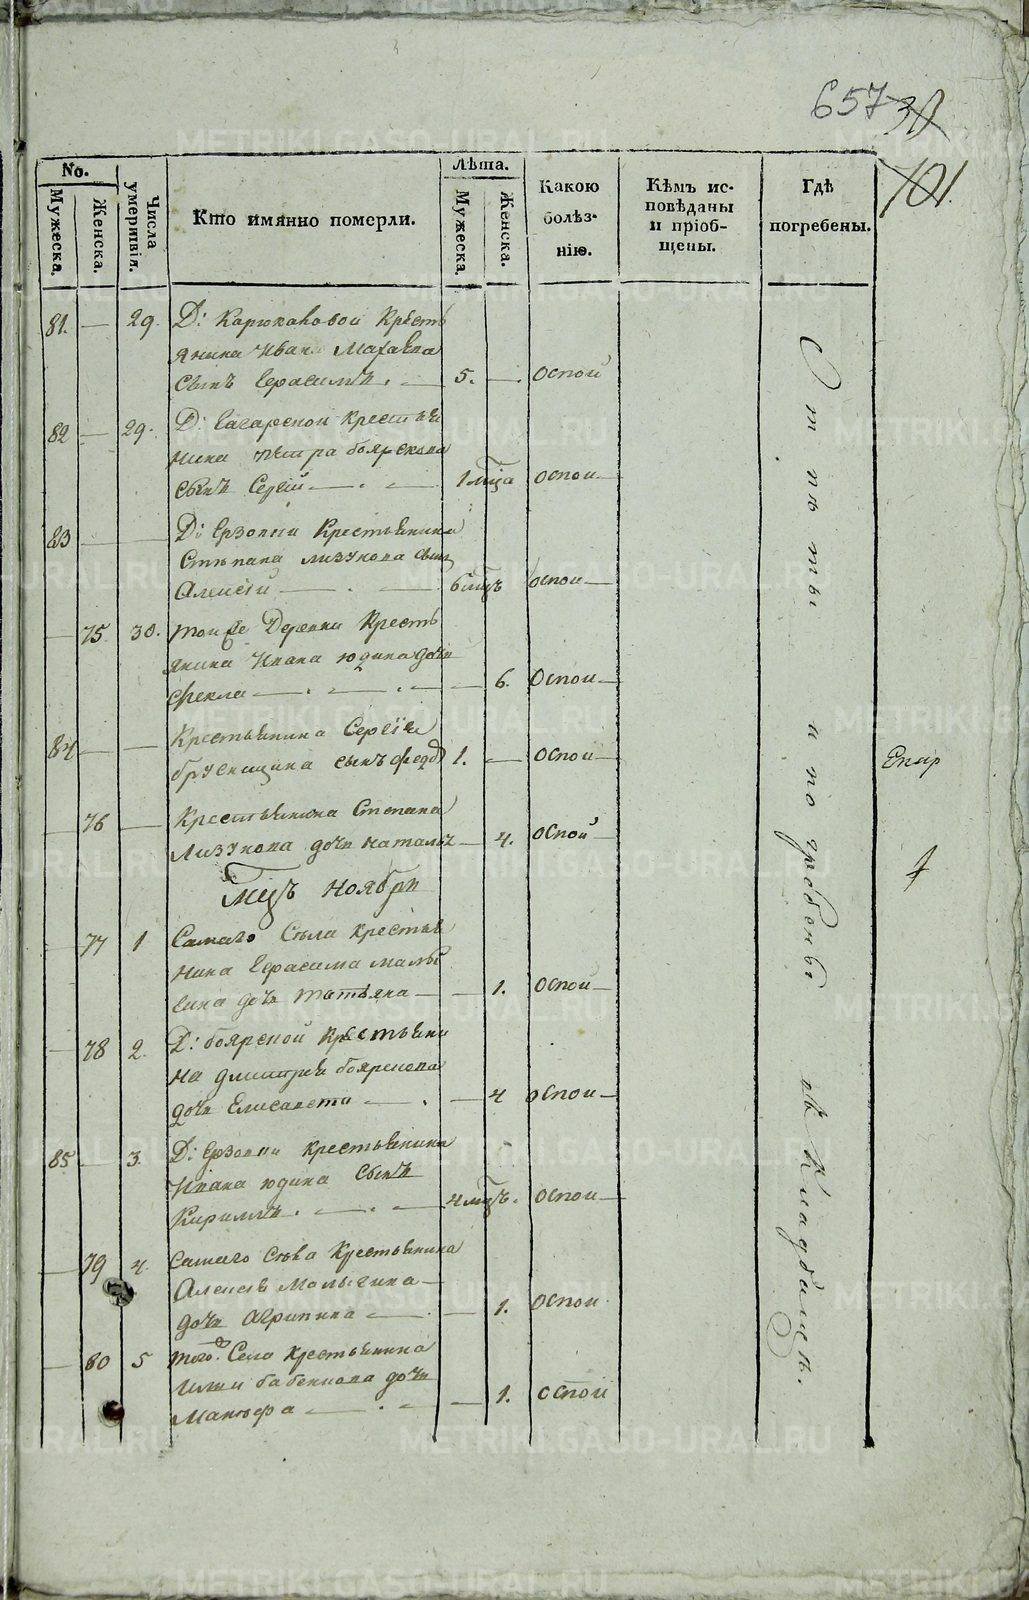 657
101.
No.
Мужеска.
Женска.
Числа умертвія.
Кто имянно померли.
Лѣта.
Мужеска.
Женска.
Какою болѣз-
нію.
Кѣмъ ис-
повѣданы
и пріоб-
щены.
Гдѣ
погребены.
81. — 29. Д: Карюкаковой Кресть
янина Ивана
сынъ Герасимъ. — 5. — оспой
82 — 29. Д: Кресть
нина петра боярскова
сынъ Сергій — 1 мца оспой
83 — — Д: Ерзовки Крестьянина
Степана лизунова сынъ
Алексій — 6 мцъ оспой
— 75 30. той же Деревни Кресть
янина Ивана юдина дочь
фекла — — 6. Оспой
84 — — Крестьянина Сергія
брусницина сынъ федоръ 1. — оспой
— 76 — Крестьянина Степана
Лизунова дочь наталья — 4. оспой
Мцъ ноябрь
— 77 1 Самаго Села кресть
нина Герасима малы
гина дочь татьяна — — 1. оспой
— 78 2. Д: боярской Крестьяни
на дмитрея боярскова
дочь Елисавета — — 4 оспой
85 — 3. Д: Ерзовки крестьянина
Ивана юдина Сынъ
Кирилъ. — 4 мцъ. оспой
— 79 4. Самаго Села Крестьянина
Алексея Малыгина
дочь Агрипина — — 1. Оспой
— 80 5 того. Села Крестьянина
Ильи бабенкова дочь
— — 1. оспой
Отпѣты и погребены на Кладбище.
METRIKI.GASO-URAL.RU